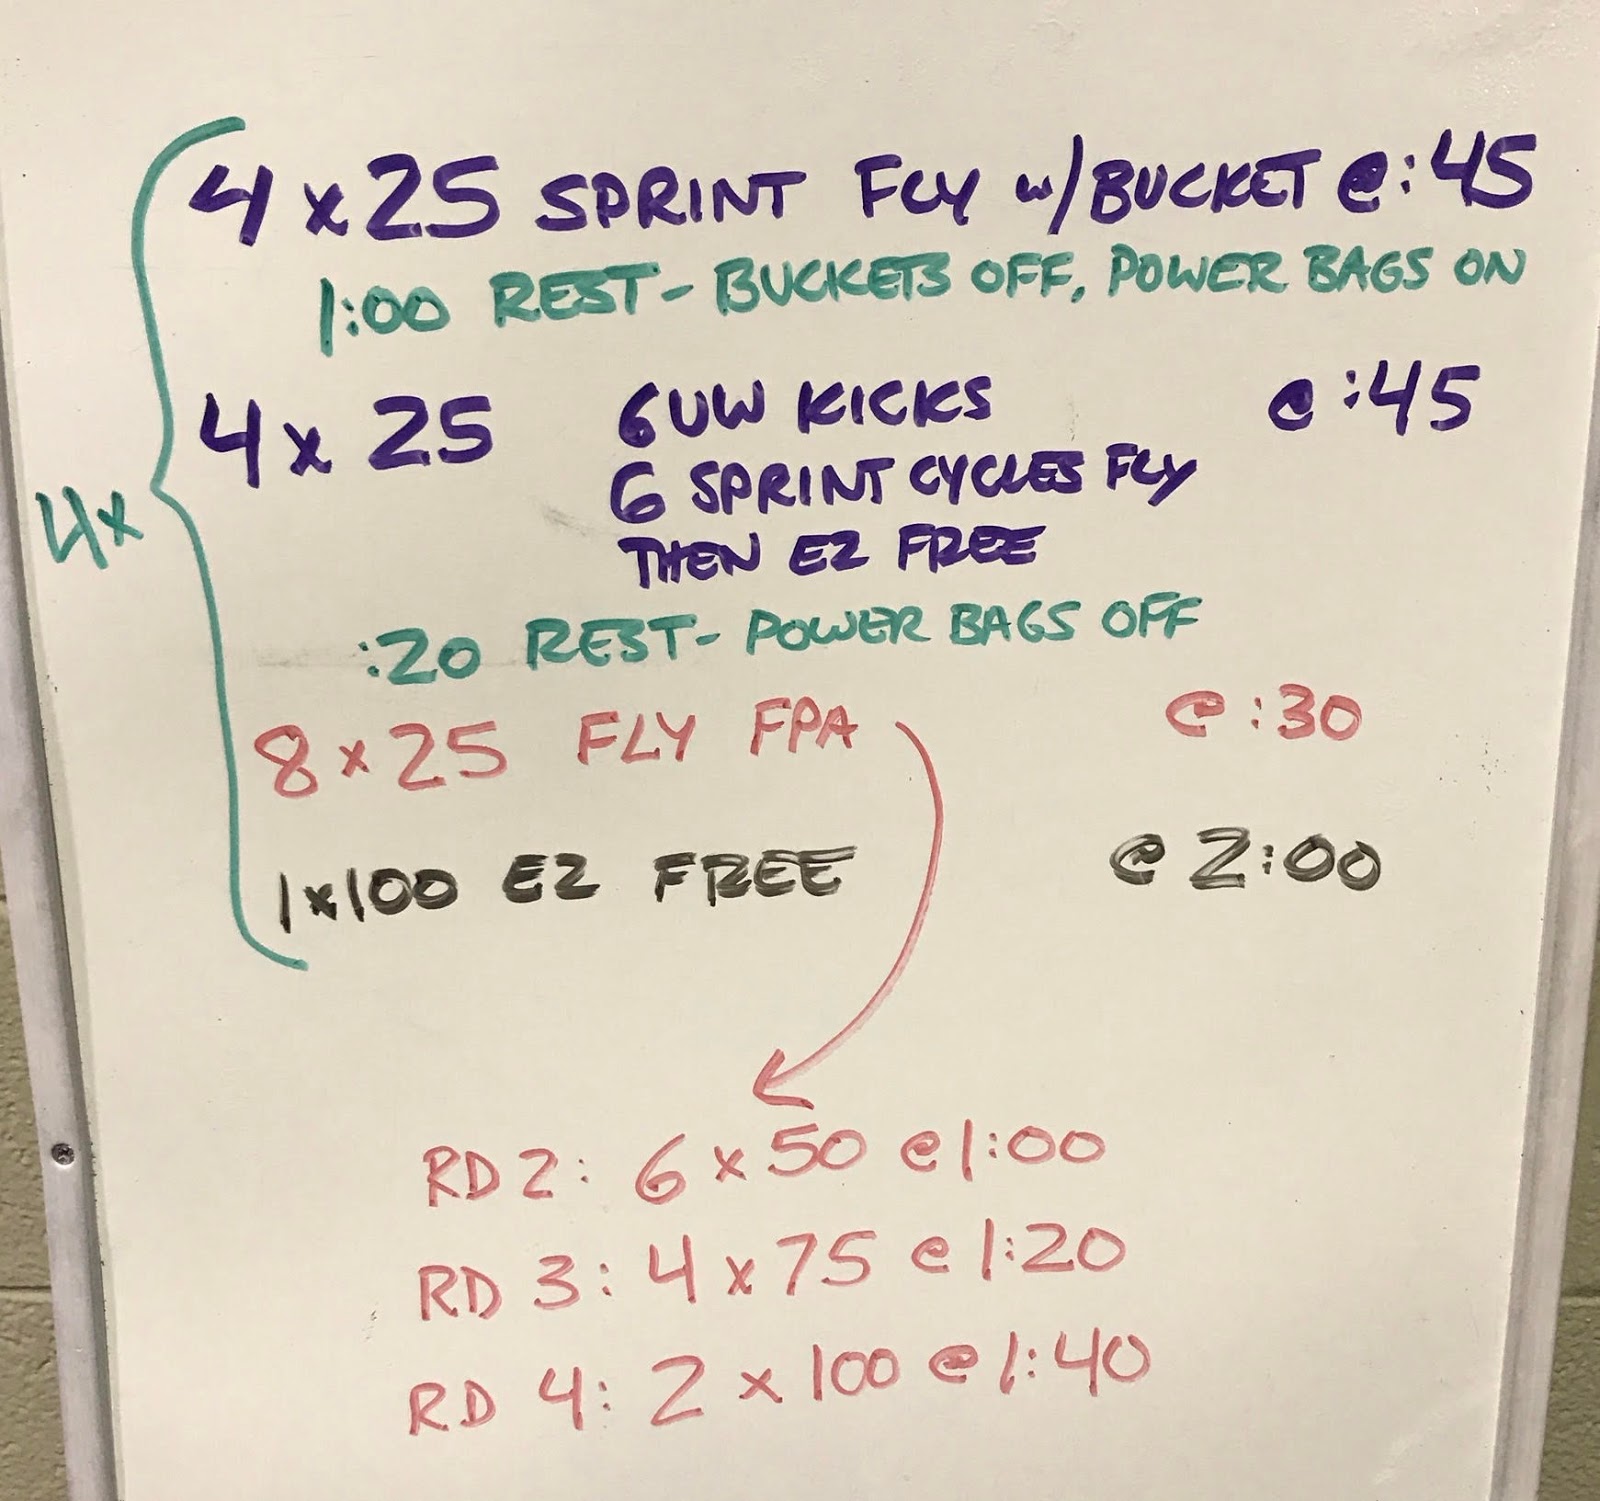 4 x 25 SPRINT FLY w/BUCKET @ :45
1:00 REST - BUCKETS OFF, POWER BAGS ON
4 x 25 6 UW KICKS @ :45
6 SPRINT CYCLES FLY
THEN EZ FREE
4x
:20 REST - POWER BAGS OFF
8 x 25 FLY FPA @ :30
1 x 100 EZ FREE @ 2:00
RD 2: 6 x 50 @ 1:00
RD 3: 4 x 75 @ 1:20
RD 4: 2 x 100 @ 1:40